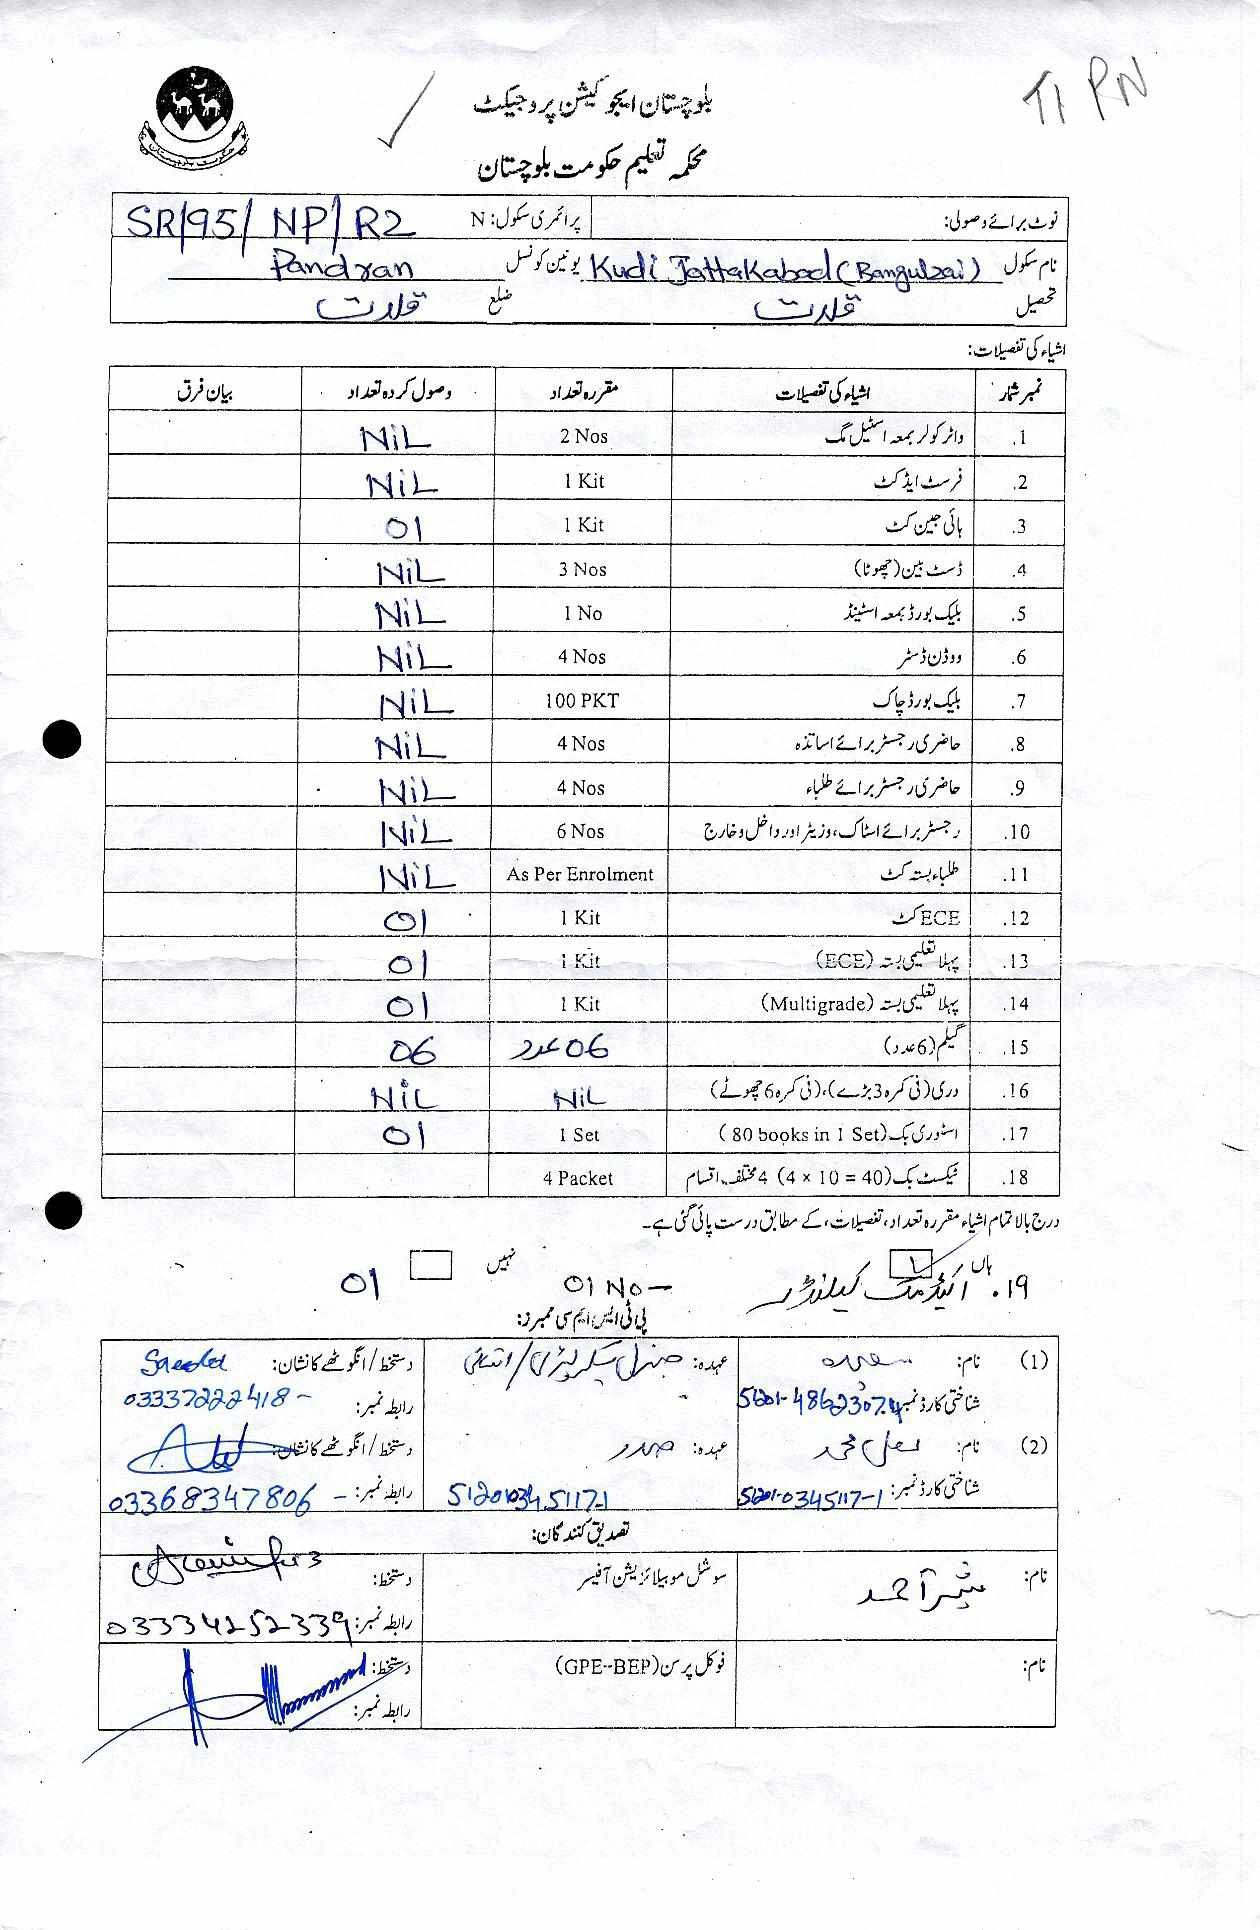 TI RN
بلوچستان ایجوکیشن پروجیکٹ
محکمہ تعلیم حکومت بلوچستان
نوٹ برائے وصولی: پرائمری سکول: N SR/95/ NP/ R2
نام سکول Kudi Jattakabad (Bangulzai) یونین کونسل Pandran
تحصیل قلات ضلع قلات
اشیاء کی تفصیلات:
نمبر شمار اشیاء کی تفصیلات مقررہ تعداد وصول کردہ تعداد بیان فرق
1. واٹر کولر بمعہ اسٹیل مگ 2 Nos NiL
2. فرسٹ ایڈ کٹ 1 Kit NiL
3. ہائی جین کٹ 1 Kit 01
4. ڈسٹ بین (چھوٹا) 3 Nos NiL
5. بلیک بورڈ بمعہ اسٹینڈ 1 No NiL
6. ووڈن ڈسٹر 4 Nos NiL
7. بلیک بورڈ چاک 100 PKT NiL
8. حاضری رجسٹر برائے اساتذہ 4 Nos NiL
9. حاضری رجسٹر برائے طلباء 4 Nos NiL
10. رجسٹر برائے اسٹاک، وزیٹر اور داخل و خارج 6 Nos NiL
11. طلباء بستہ کٹ As Per Enrolment NiL
12. ECE کٹ 1 Kit 01
13. پہلا تعلیمی بستہ (ECE) 1 Kit 01
14. پہلا تعلیمی بستہ (Multigrade) 1 Kit 01
15. گیلم (6 عدد) 06 عدد 06
16. دری (فی کمرہ 3 بڑے)، (فی کمرہ 6 چھوٹے) NiL NiL
17. اسٹوری بک (80 books in 1 Set) 1 Set 01
18. ٹیکسٹ بک (4 × 10 = 40) 4 مختلف اقسام 4 Packet
درج بالا تمام اشیاء مقررہ تعداد، تفصیلات، کے مطابق درست پائی گئی ہے۔
ہاں نہیں
۱۹. اکیڈمک کیلنڈر 01 No - 01
پی ٹی ایس ایم سی ممبرز:
(1) نام: سعیدہ عہدہ: جنرل سیکریٹری / دستخط/انگوٹھے کا نشان: Saeeda
شناختی کارڈ نمبر رابطہ نمبر: 03337222418 -
(2) نام: لعل محمد عہدہ: صدر دستخط/انگوٹھے کا نشان:
شناختی کارڈ نمبر: 51201-0345117-1 512010345117-1 رابطہ نمبر: 03368347806 -
تصدیق کنندگان:
نام: بشیر احمد سوشل موبیلائزیشن آفیسر دستخط:
رابطہ نمبر: 03334252339
نام: فوکل پرسن (GPE-BEP) دستخط:
رابطہ نمبر: